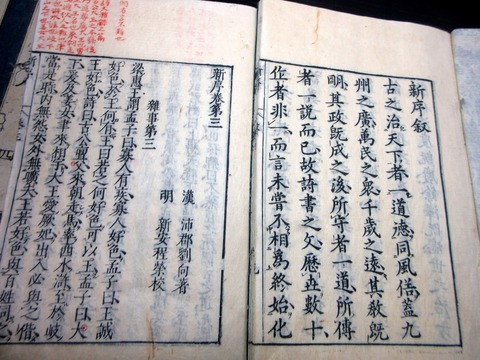 新序叙
古之治天下者一道德同風俗蓋九
州之廣萬民之衆千歳之遠其教既
明其政既成之後所守者一道所傳
者一說而已故詩書之文歷世數十
作者非一而言未嘗不相為終始化
新序卷第三
漢 沛郡劉向著
明 新安程榮校
雜事第三
梁惠王謂孟子曰寡人有疾寡人好色孟子曰王誠
好色於王何有王曰若之何好色可以王孟子曰大
王好色詩曰古公亶父來朝走馬率西水滸至於岐
下爰及姜女聿來相宇大王愛厥妃出入必與之偕
當是時内無怨女外無曠夫王若好色與百姓同之